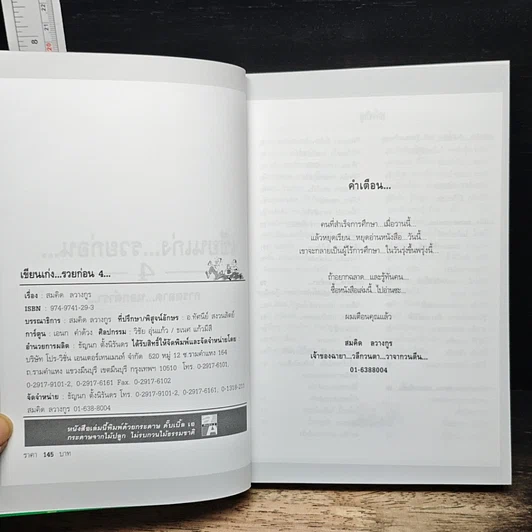 เขียนเก่ง...รวยก่อน 4...
เรื่อง : สมคิด ลวางกูร
ISBN : 974-9741-29-3
บรรณาธิการ : สมคิด ลวางกูร ที่ปรึกษา/พิสูจน์อักษร : อ.ทัศนีย์ สงวนสัตย์
การ์ตูน : เอนก คำด้วง ศิลปกรรม : วิชัย อุ่นแก้ว / ธเนศ แก้วมีสี
อำนวยการผลิต : ธัญนภ ตั้งนิรันดร ได้รับสิทธิ์ให้จัดพิมพ์และจัดจำหน่ายโดย
บริษัท โปร-วิชั่น เอนเตอร์เทนเมนท์ จำกัด 530 หมู่ 12 ซ.รามคำแหง 164
ถ.รามคำแหง แขวงมีนบุรี เขตมีนบุรี กรุงเทพฯ 10510 โทร. 0-2917-6101,
0-2917-9101-2, 0-2917-6161 Fax. 0-2917-6102
จัดจำหน่าย : ธัญนภ ตั้งนิรันดร โทร. 0-2917-9101-2, 0-2917-6161,
สมคิด ลวางกูร 01-638-8004
หนังสือเล่มนี้พิมพ์ด้วยกระดาษ ดั๊บเบิ้ล เอ
กระดาษจากไม้ปลูก ไม่รบกวนไม้ธรรมชาติ
ราคา 145 บาท
คำเตือน...
คนที่สำเร็จการศึกษา...เมื่อวานนี้...
แล้วหยุดเรียน...หยุดอ่านหนังสือ...วันนี้
เขาจะกลายเป็นผู้ไร้การศึกษา...ในวันรุ่งขึ้นพรุ่งนี้...
ถ้าอยากฉลาด...และรู้ทันคน...
ซื้อหนังสือเล่มนี้...ไปอ่านซะ...
ผมเตือนคุณแล้ว
สมคิด ลวางกูร
เจ้าของฉายา...วลีกวนตา...วาจากวนตีน...
01-6388004